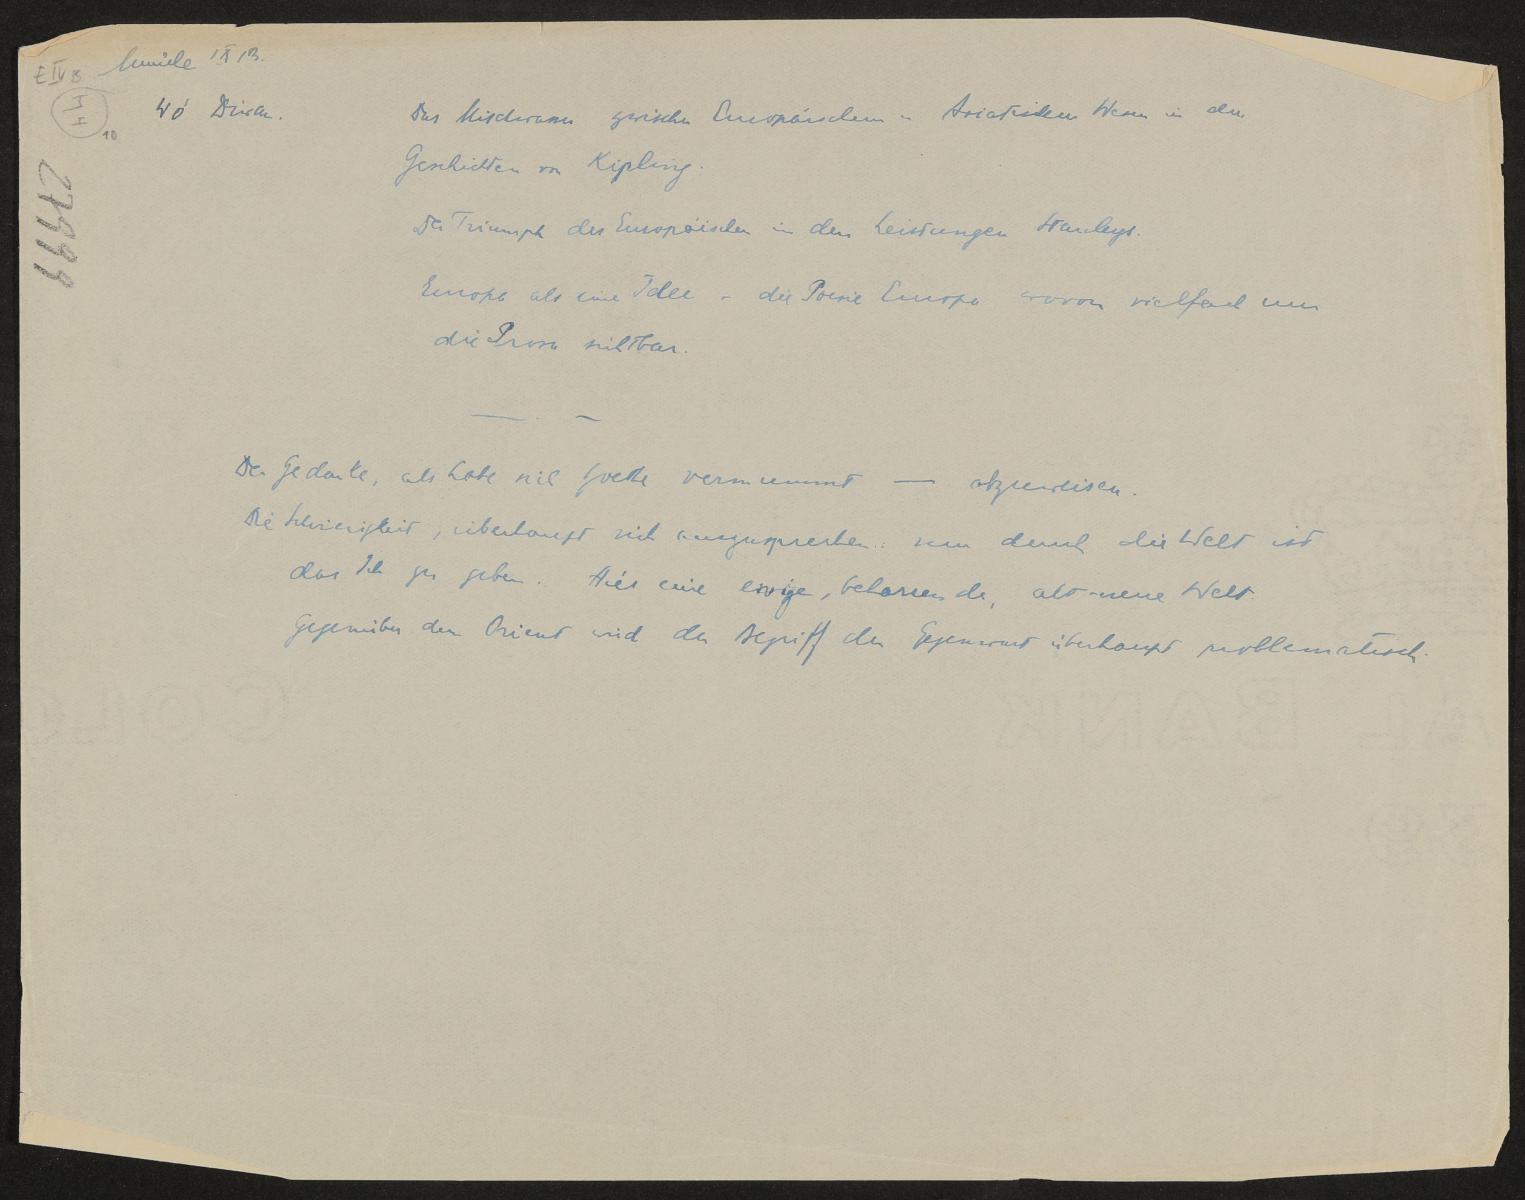 E IV B
München IX 13.
44
10
27998
WÖ Divan.
Das Mischwesen zwischen Europäischem u Asiatischem Wesen in den
Geschichten von Kipling.
Der Triumph des Europäischen in den Leistungen Stanleys.
Europa als eine Idee – die Poesie Europa wovon vielfach nur
die Prosa sichtbar.
Der Gedanke, als habe sich Goethe vermummt — abzuweisen.
Die Schwierigkeit, überhaupt sich auszusprechen: nur durch die Welt ist
das Ich zu geben. Hier eine ewige, beharrende, alt-neue Welt.
Gegenüber dem Orient wird der Begriff der Gegenwart überhaupt problematisch.
COLO
AL BANK